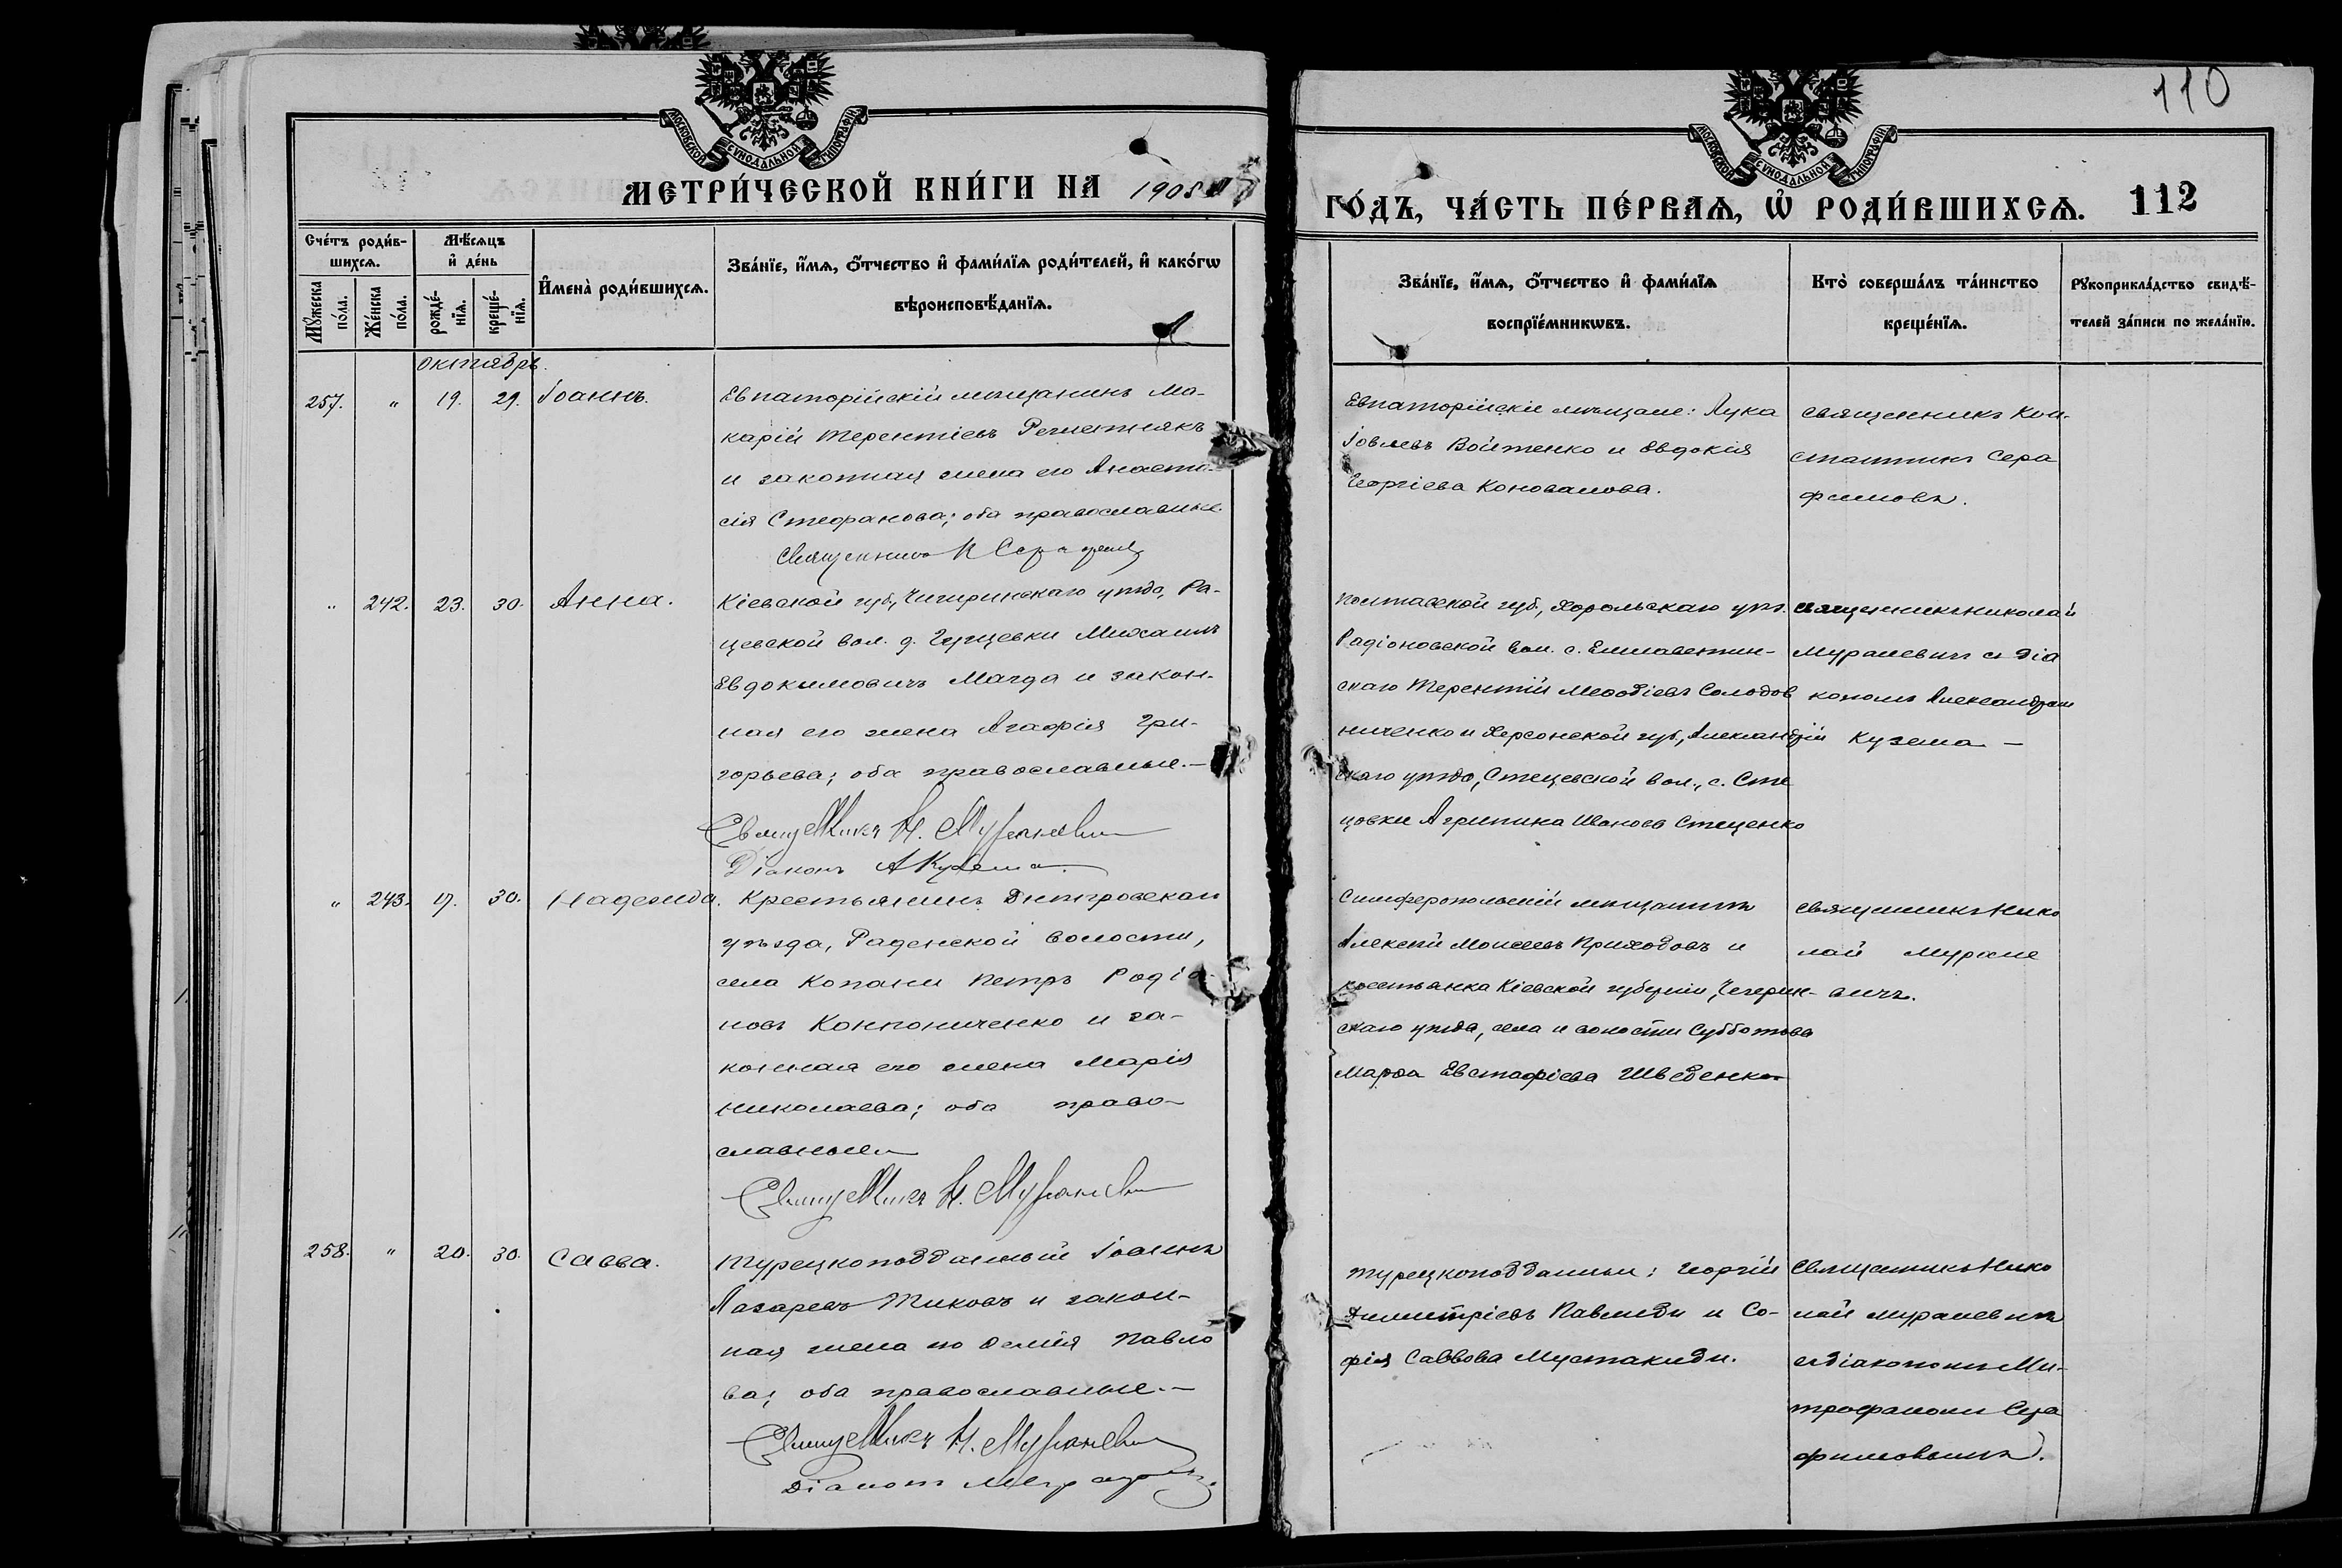 110
МОСКОВСКОЙ СѴНОДАЛЬНОЙ ТИПОГРАФІИ
МОСКОВСКОЙ СѴНОДАЛЬНОЙ ТИПОГРАФІИ
МЕТРИ́ЧЕСКОЙ КНИ́ГИ НА 1908
ГО́ДЪ, ЧА́СТЬ ПЕ́РВАѦ, Ѡ҆ РОДИ́ВШИХСѦ. 112
Сче́тъ роди́в-
шихсѧ.
Мѣ́сѧцъ
и҆ де́нь
Мꙋ́жеска
по́ла.
Же́нска
по́ла.
рожде́-
нїѧ.
креще́-
нїѧ.
И҆мена̀ роди́вшихсѧ.
Зва́нїе, и҆́мѧ, ѻ҆́тчество и҆ фами́лїѧ роди́телей, и҆ како́гѡ
вѣроисповѣ́данїѧ.
Зва́нїе, и҆́мѧ, ѻ҆́тчество и҆ фами́лїѧ
воспрїе́мникѡвъ.
Кто̀ соверша́лъ та́инство
креще́нїѧ.
Рꙋкоприкла́дство свидѣ́-
телей за́писи по жела́нїю.
октябрь.
257. " 19. 29. Іоаннъ.
Евпаторійскій мѣщанинъ Ма-
карій Терентіевъ Решетнякъ
и законная жена его Анаста-
сія Стефанова; оба православные.
Священникъ К Серафимов
Евпаторійскіе мѣщане: Лука
Іовлевъ Войтенко и Евдокія
Георгіева Коновалова.
священникъ Кон-
стантинъ Сера
фимовъ.
" 242. 23. 30. Анна.
Кіевской губ., Чигиринскаго уѣзда, Ра-
цевской вол. д. Чернцевки Михаилъ
Евдокимовичъ Магда и закон-
ная его жена Агафія Гри-
горьева; оба православные.—
Священникъ Н. Мураневич
Діаконъ А Кузема
Полтавской губ., Хорольскаго уѣз.
Радіоновской вол. с. Елисаветин-
скаго Терентій Меѳодіевъ Солодов
ниченко и Херсонской губ., Александрій
скаго уѣзда, Стецевской вол., с. Сте
цовки Агрипина Иванова Стеценко
священникъ Николай
Мураневичъ съ діа
кономъ Александром
Кузема —
" 243. 17. 30. Надежда.
Крестьянинъ Днѣпровскаго
уѣзда, Раденской волости,
села Копани Петръ Родіо-
новъ Конпониченко и за-
конная его жена Марія
Николаева; оба право-
славные
Священникъ Н. Мураневич
Симферопольскій мѣщанинъ
Алексѣй Моисеевъ Приходовъ и
крестьянка Кіевской губерніи, Чегерин-
скаго уѣзда, села и волости Субботова
Марѳа Евстафіева Шведенко
священникъ Нико
лай Муране
вичъ.
258. " 20. 30. Савва.
Турецкоподданный Іоаннъ
Лазаревъ Тиковъ и закон-
ная жена его Павло
ва; оба православные.—
Священникъ Н. Мураневич
Діаконъ
Турецкоподданные: Георгій
Димитріевъ Павлиди и Со-
фія Саввова Мустакиди.
Священникъ Нико
лай Мураневичъ
съ діакономъ Ми-
трофаномъ Сера
фимовымъ.